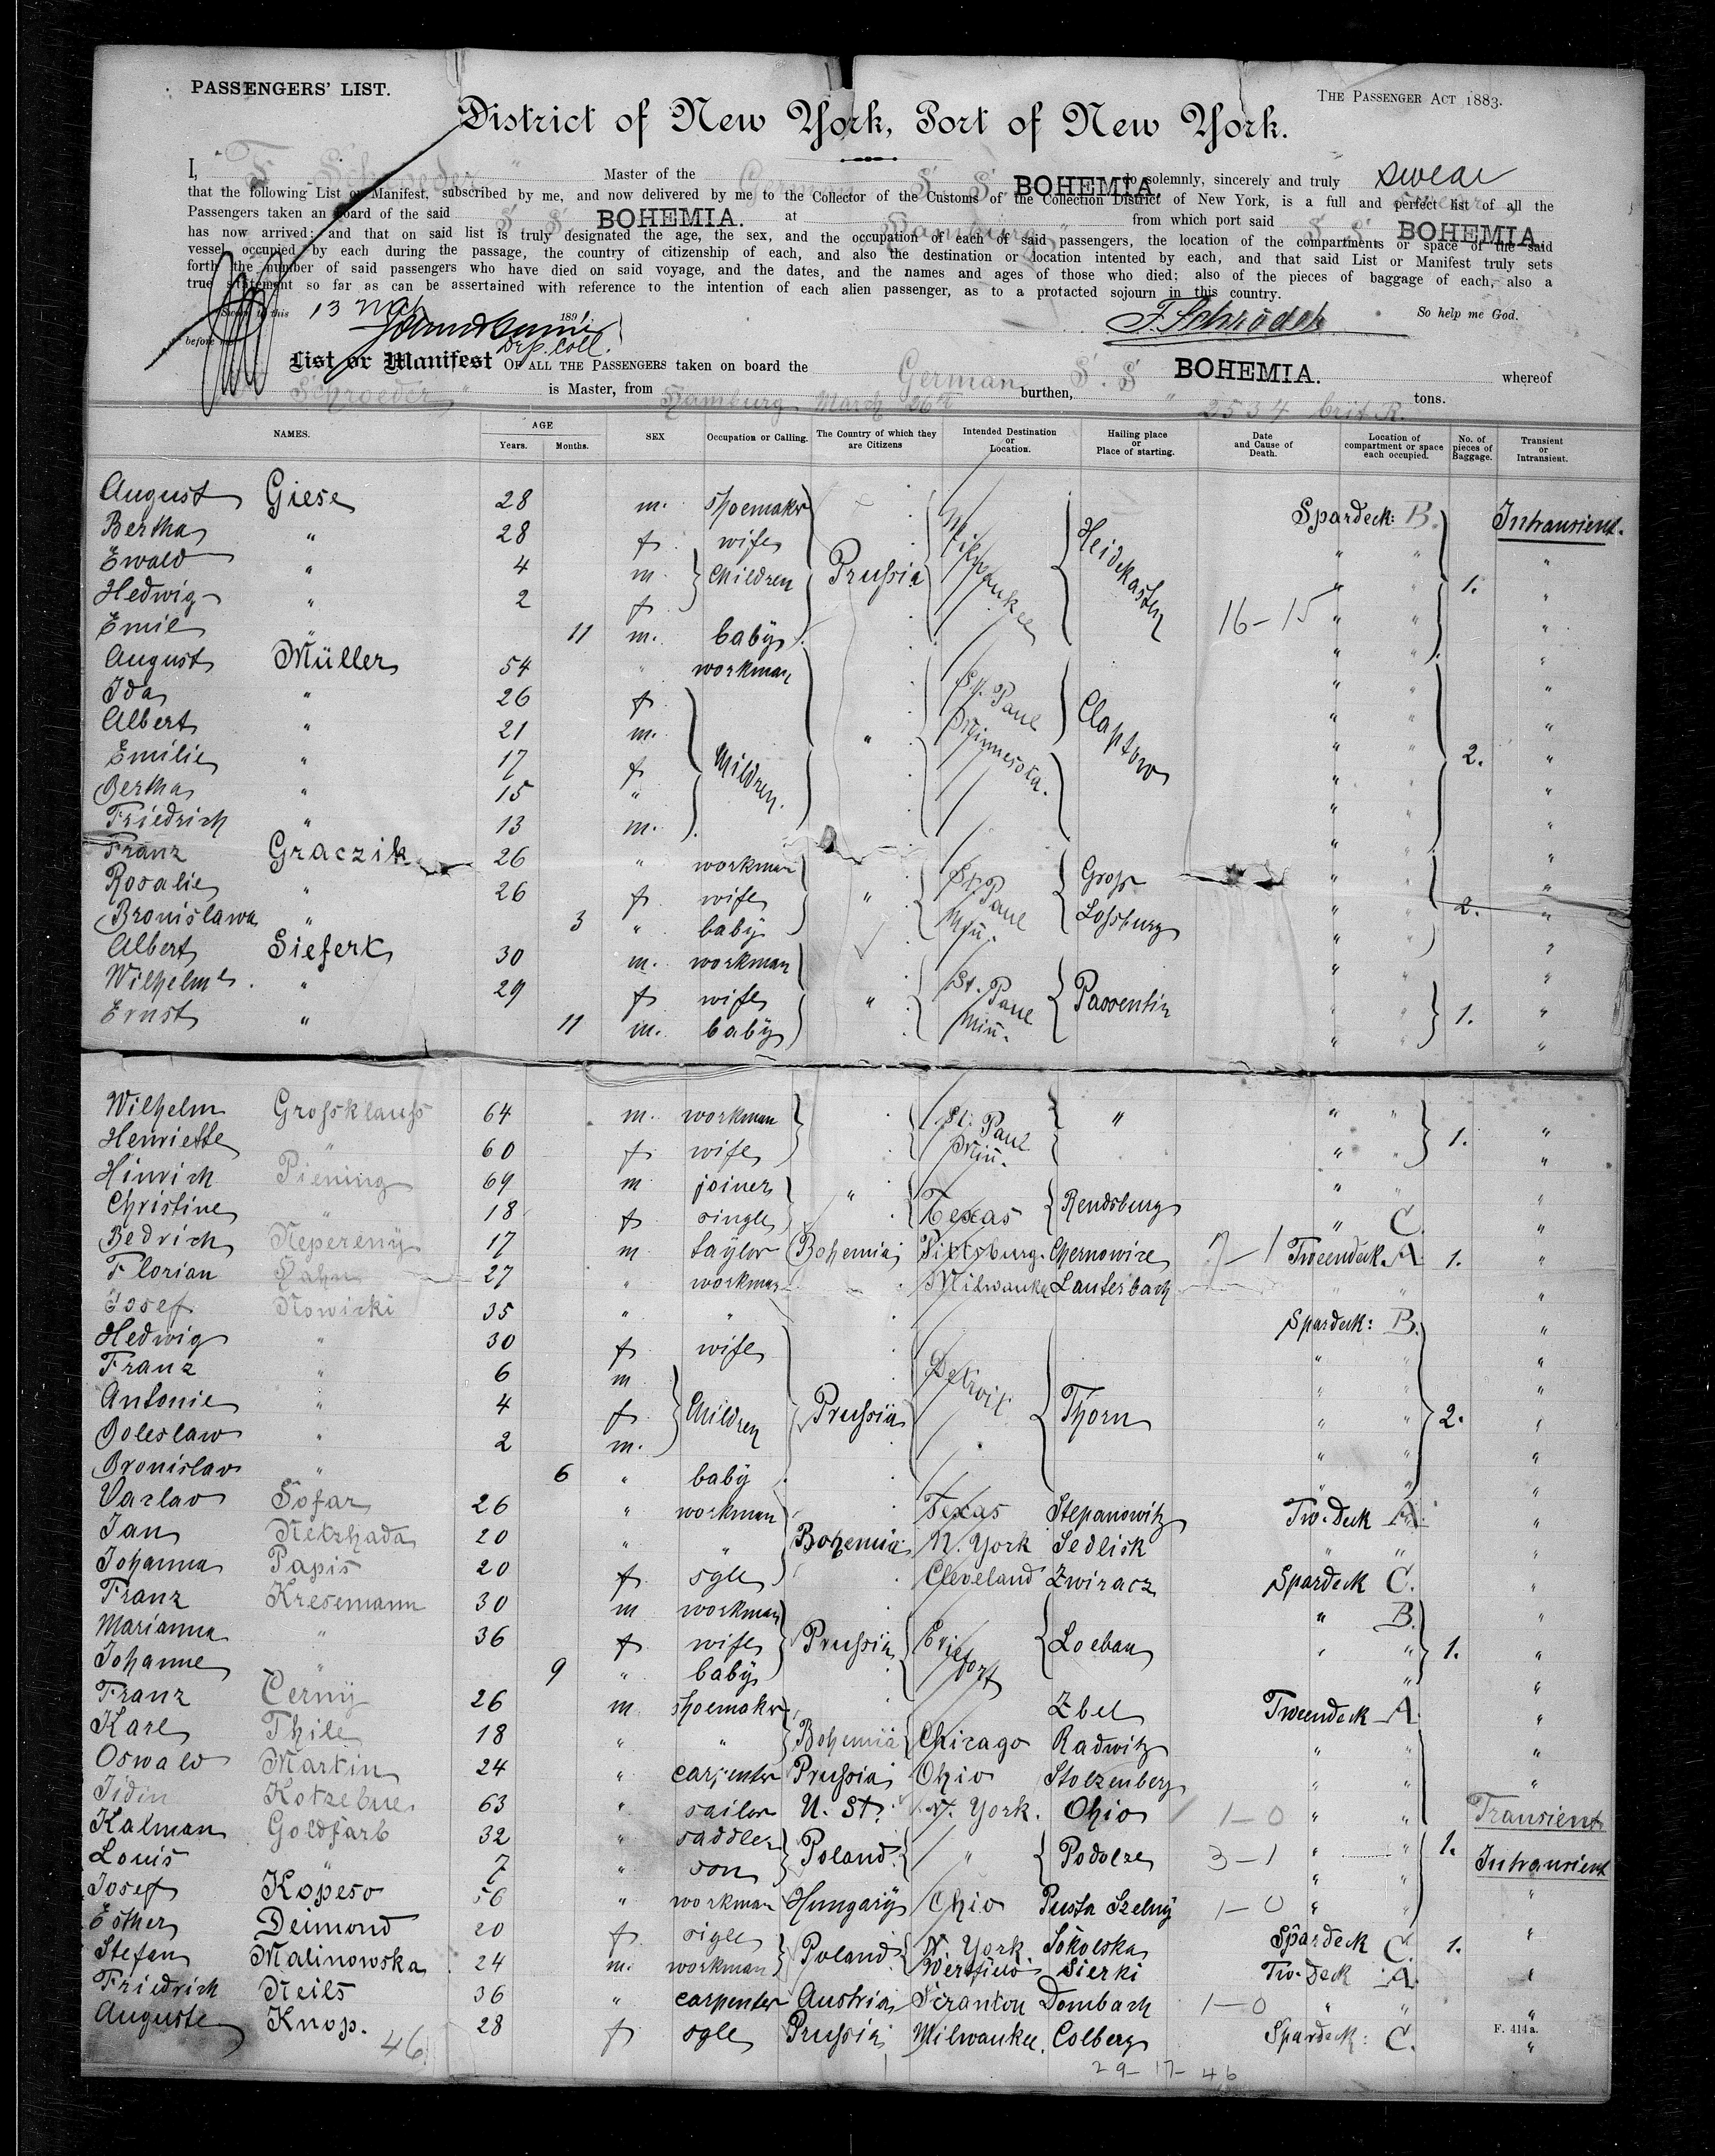 PASSENGERS' LIST.
THE PASSENGER ACT 1883.
District of New York, Port of New York.
I, F. Schroeder Master of the German S. S. BOHEMIA. do solemnly, sincerely and truly swear
that the following List or Manifest, subscribed by me, and now delivered by me to the Collector of the Customs of the Collection District of New York, is a full and perfect list of all the
Passengers taken an board of the said S. S. BOHEMIA. at Hamburg from which port said S. S. BOHEMIA.
has now arrived; and that on said list is truly designated the age, the sex, and the occupation of each of said passengers, the location of the compartments or space of the said
vessel occupied by each during the passage, the country of citizenship of each, and also the destination or location intented by each, and that said List or Manifest truly sets
forth the number of said passengers who have died on said voyage, and the dates, and the names and ages of those who died; also of the pieces of baggage of each, also a
true statement so far as can be assertained with reference to the intention of each alien passenger, as to a protacted sojourn in this country.
Sworn to this 13 1891 F. Schröder So help me God.
before me Dep. Coll.
List or Manifest OF ALL THE PASSENGERS taken on board the German S. S BOHEMIA. whereof
Schroeder is Master, from Hamburg March 26th burthen, 2534 brit R. tons.
NAMES. AGE Years. Months. SEX Occupation or Calling. The Country of which they are Citizens Intended Destination or Location. Hailing place or Place of starting. Date and Cause of Death. Location of compartment or space each occupied. No. of pieces of Baggage. Transient or Intransient.
August Giese 28 m. shoemakr Spardeck: B. Intransient.
Bertha " 28 f. wife " " "
Ewald " 4 m. Children Prussia Milwaukee Heidekasten " " 1. "
Hedwig " 2 f. 16-15 " " "
Emil " 11 m. baby " " "
August Müller 54 " workman " " "
Ida " 26 f. St. Paul " " "
Albert " 21 m. " Minnesota. Claptow " " 2. "
Emilie " 17 f. Children. " " "
Bertha " 15 " " " "
Friedrich " 13 m. " " "
Franz Graczik 26 " workman Gross " " "
Rosalie " 26 f. wife " St. Paul Lossburg " " 2. "
Bronislawa " 3 " baby Min. " " "
Albert Siefert 30 m. workman " " "
Wilhelme " 29 f. wife " St. Paul Passentin " " 1. "
Ernst " 11 m. baby Min. " " "
Wilhelm Grossklauss 64 m. workman St. Paul " " " 1. "
Henriette " 60 f. wife Min. " " "
Hinrich Piening 69 m joiner " " " "
Christine " 18 f. single Texas Rendsburg " C. "
Bedrich Nepereny 17 m taylor Bohemia Pittsburg. Chernowize 7-1 Tweendeck. A 1. "
Florian 27 " workman Milwaukee Lauterbach " " "
Josef Nowicki 35 " " Spardeck: B. "
Hedwig " 30 f. wife " " "
Franz " 6 m Detroit " " "
Antonie " 4 f. Children Prussia Thorn " " 2. "
Boleslaw " 2 m. " " "
Bronislav " 6 " baby " " "
Vazlav Sofar 26 " workman Texas Stepanowitz Tw. Deck A "
Jan Netzhada 20 " " Bohemia N. York Sedlisk " " "
Johanna Papis 20 f. sgle Cleveland Zwiracz Spardeck C. "
Franz Kresemann 30 m workman " B. "
Marianna " 36 f. wife Prussia Löebau " " 1. "
Johanne " 9 " baby " "
Franz Cerny 26 m. shoemakr Zbel Tweendeck A. "
Karl Thile 18 " " Bohemia Chicago Radwitz " " "
Oswald Martin 24 " carpenter Prussia Ohio Stolzenberg " " "
Kotzebue 63 " sailor U. St. N. York. Ohio 1-0 " " Transient
Kalman Goldfarb 32 " saddler Poland " Podolze 3-1 " " 1. Intransient
Louis " 7 " son " " "
Josef Kopeso 56 " workman Hungary Ohio Pusta Szelny 1-0 " " "
Esther Deimond 20 f. sigle Poland N. York Sokolska Spardeck C. 1. "
Stefan Malinowska 24 m. workman Sierki Tw. Deck A. "
Friedrich Neils 36 " carpenter Austria Scranton Dombach 1-0 " " "
Auguste Knop. 28 f sgle Prussia Milwaukee. Colberg Spardeck: C. "
46
F. 414a.
29-17-46